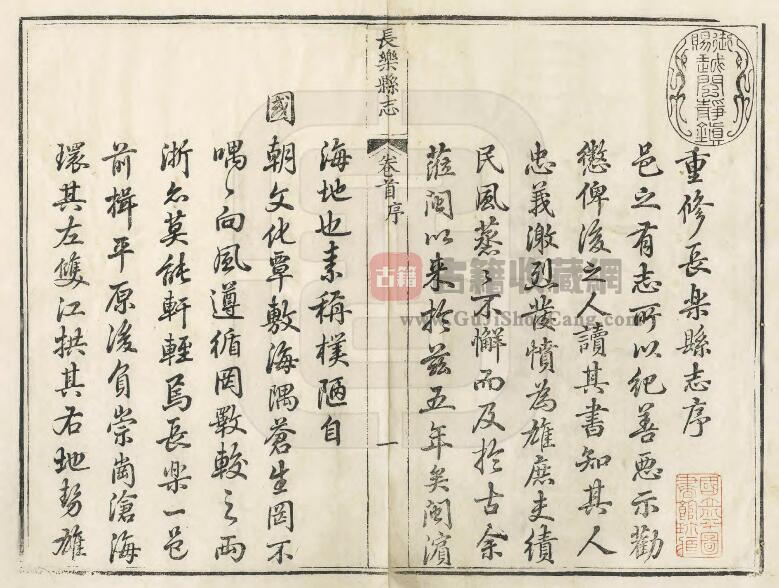 重修長樂縣志序
邑之有志所以紀善惡示勸
懲俾後之人讀其書知其人
忠義激烈發憤為雄庶吏績
民風蒸〻不懈而及於古余
蒞閩以來於茲五年矣閩濱
長樂縣志
卷首序
一
海地也素稱樸陋自
國朝文化覃敷海隅蒼生罔不
喁〻向風遵循罔斁較之兩
浙亦莫能軒輊焉長樂一邑
前楫平原後負崇崗滄海
環其左雙江拱其右地勢雄
御賜越閩靜鎮
古籍
古籍收藏網
www.GujiShouCang.com